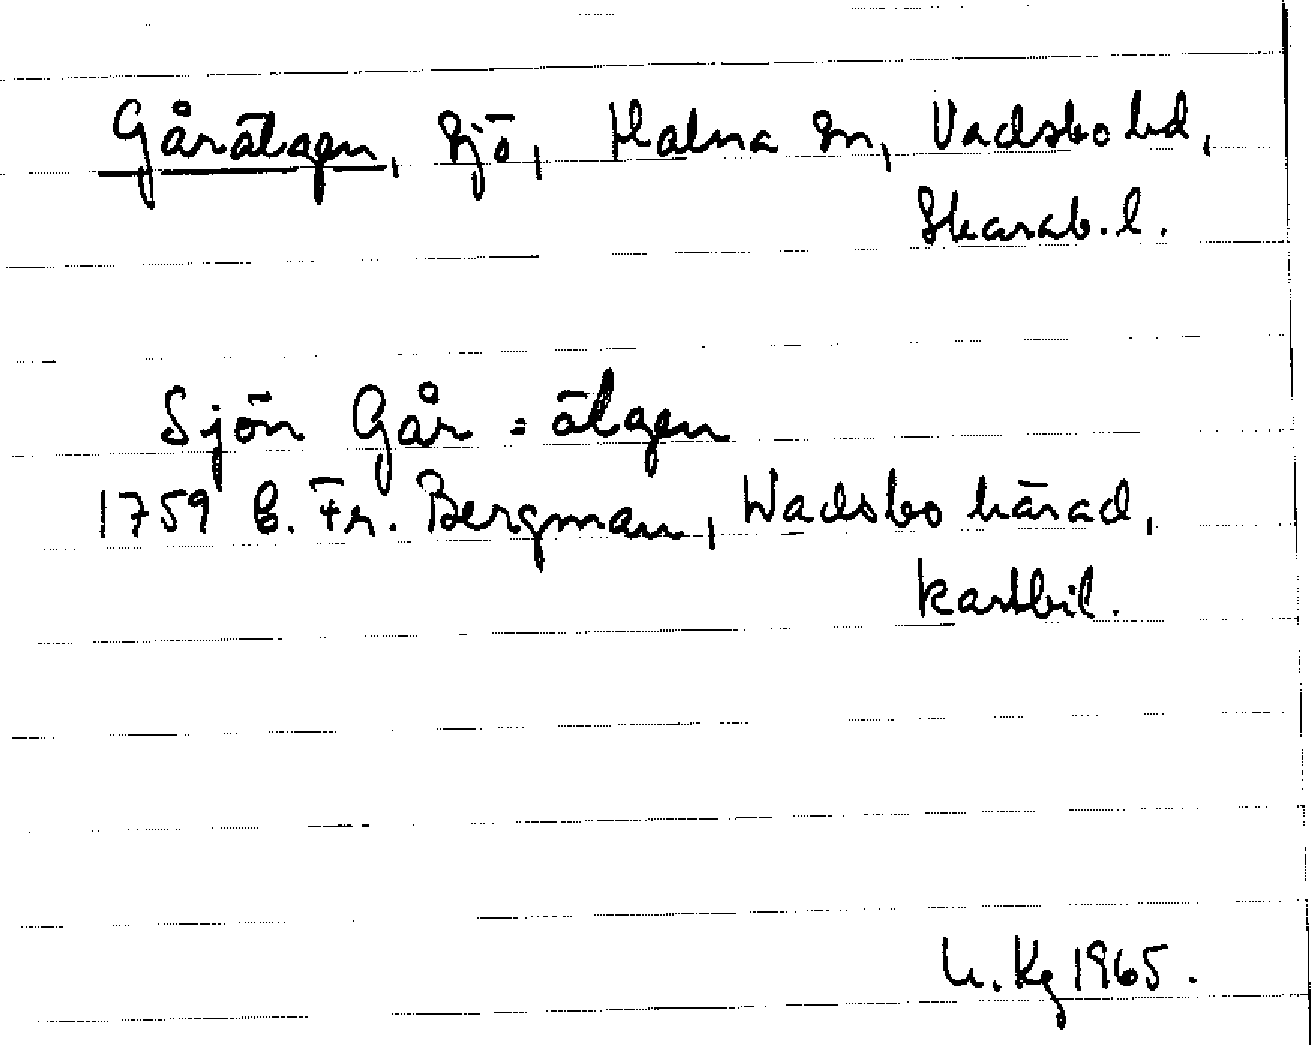 Gårälgen, sjö, Halna sn, Vadsbo hd,
Skarab. l.
Sjön Går = älgen
1759 C. Fr. Bergman, Wadsbo härad,
kartbil.
U. Kg 1965.